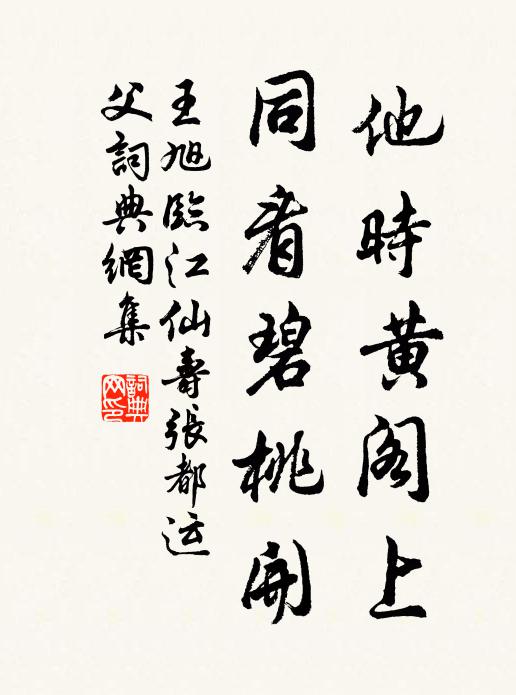 他時黃閣上
同看碧桃開
王旭臨江仙壽張都运
父詞典網集
詞典网印